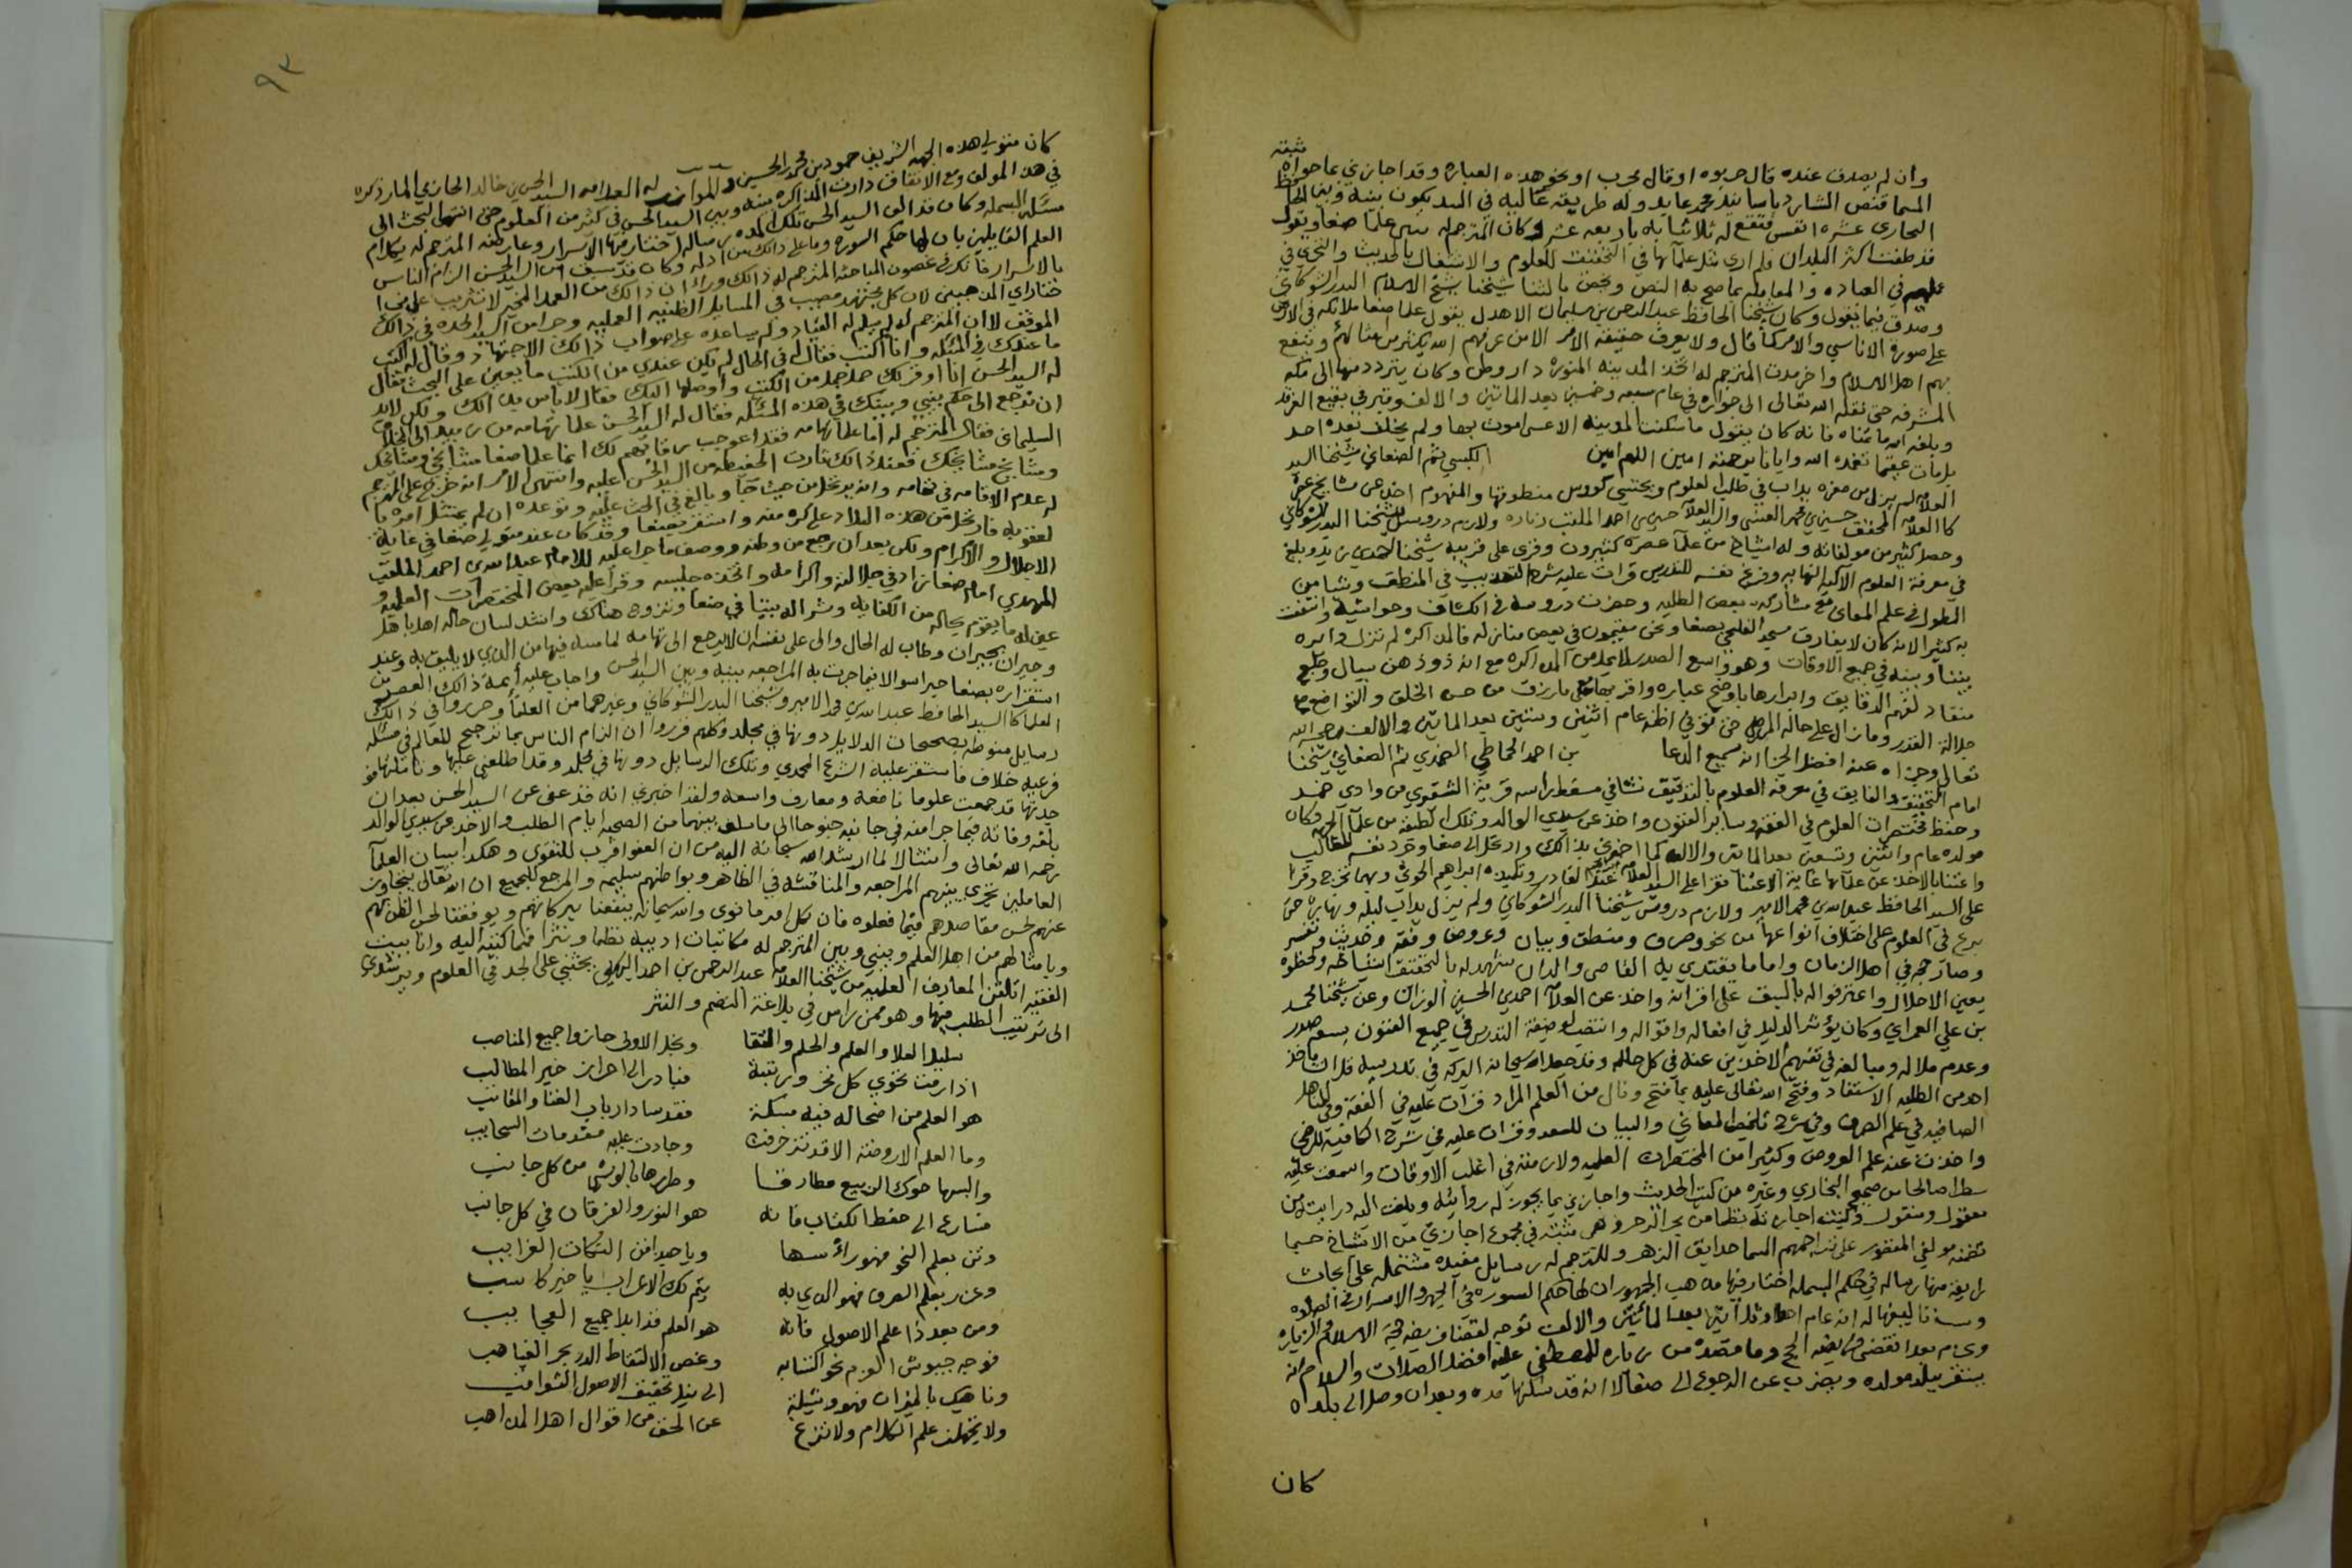 ثبته
وان لم يصدق عنده قال جربوه او قال مجرب او نحو هذه العباره وقد اجازني بما حواه
المسما قنص الشارد باسانيد محمد عابد وله طريقة عاليه في السند يكون بينه وبين الحافظ
البخاري عشره انفس فتقع له ثلاثياته باربعه عشر وكان المترجم له يثني على علما صنعا ويقول
قد طفت اكثر البلدان فلم ارى مثل علمآئها في التحقيق للعلوم والاشتغال بالحديث والتحري في
في العباده والمعامله بما صح به النص ويخص بالثنا شيخنا شيخ الاسلام البدر الشوكاني
وصدق فيما يقول وكان شيخنا الحافظ عبد الرحمن بن سليمان الاهدل يقول علما صنعا ملائكه في الارض
على صورة الاناسي والامر كما قال ولا يعرف حقيقة الامر الا من عرفهم الله يكثر من امثالهم وينفع
بهم اهل الاسلام واخر مدت المترجم له اتخذ المدينه المنوره دار وطن وكان يتردد منها الى مكه
المشرفه حتى نقله الله تعالى الى جواره في عام سبعه وخمسين بعد المائتين والالف وقبر في بقيع الغرقد
وبلغه الله ما تمناه فانه كان يقول ما سكنت المدينه الا عسى اموت بها ولم يخلف بعده احد
بل مات عقيما تغمده الله وايانا برحمته امين اللهم امين الكبسي ثم الصنعاني شيخنا السيد
العلامه لم يزل من صغره يداب في طلب العلوم ويحتسي كووس منطوقها والمفهوم اخذ عن مشايخ عصره
كالعلامه المحقق حسين بن محمد العنسي والسيد العلامه حسين بن احمد الملقب زباره ولازم دروس شيخنا البدر الشوكاني
وحصل كثير من مولفاته وله اشياخ من علما عصره كثيرون وقرى على قريبه شيخنا
في معرفة العلوم الاليه النهايه وفرغ نفسه للتدريس قرات عليه شرح التهذيب في المنطق وشيا من
المطول في علم المعاني مع مشاركه بعض الطلبه وحضرت دروسه في الكشاف وحواشيه وانتفعت
به كثير الانه كان لا يفارق مسجد الفليحي بصنعا ونحن مقيمون في بعض منازله فالمذاكره لم تزل دايره
بيننا وبينه في جميع الاوقات وهو واسع الصدر لا يمل من المذاكره مع انه ذو ذهن سيال وطبع
منقاد لفهم الدقايق وابرازها باوضح عباره واقربها مع ما رزق من حسن الخلق والتواضع مع
جلالة القدر وما زال على حاله المرضي حتى توفي اظنه عام اثنين وستين بعد المائتين والالف رحمه الله
تعالى وجزاه عنه افضل الجزا انه سميع الدعا بن احمد الحماطي الضمدي ثم الصنعاني شيخنا
امام التحقيق والفايق في معرفة العلوم بالتدقيق نشا في مسقط راسه قرية الشقيري من وادي ضمد
وحفظ مختصرات العلوم في الفقه وساير الفنون واخذ عن سيدي الوالد وتلك الطبقه من علمآ الجهه وكان
مولده عام واثنين وتسعين بعد المائه والالف كما اخبرني بذالك وارتحل الى صنعا وجرد نفسه للطلب
واعتنا بالاخذ عن علمآئها غاية الاعتنا فقرا على السيد العلامه ابراهيم بن عبد القادر وتلميذه ابراهيم الحوثي وبهما تخرج وقرا
على السيد الحافظ عبد الله بن محمد الامير ولازم دروس شيخنا البدر الشوكاني ولم يزل يداب ليله ونهاره حتى
برع في العلوم على اختلاف انواعها من نحو وصرف ومنطق وبيان وعروض وفقه وحديث وتفسير
وصار حجه في اهل الزمان واماما يقتدي به القاصي والدان يشهد له بالتحقيق اشياخه ولحظوه
بعين الاجلال واعترفوا له بالسبق على اقرانه واخذ عن العلامه احمد بن الحسين الوزان وعن شيخنا محمد
بن علي العمراني وكان يؤثر الدليل في افعاله واقواله وانتصب لوظيفة التدريس في جميع الفنون بسعة صدر
وعدم ملاله ومبالغه في تفهيم الاخذين عنه في كل حاله وقد جعل الله سبحانه البركه في تدريسه قل ان ياخذ
احد من الطلبه الا استفاد وفتح الله تعالى عليه بما فتح ونال من العلم المراد قرات عليه في الفقه وفي المناهل
الصافيه في علم الصرف وفي شرح تلخيص المعاني والبيان للسعد وقرات عليه في شرح الكافيه للرضي
واخذت عنه علم العروض وكثيرا من المختصرات العلميه ولازمته في اغلب الاوقات واسمعت عليه
شطرا صالحا من صحيح البخاري وغيره من كتب الحديث واجازني بما يجوز له روايته وبلغت اليه درايته من
معقول ومنقول وكتبت اجازته نظما من بحر الرجز وهي مثبته في مجموع اجازتي من الاشياخ حسبما
تضمنه مولفي المقصور على تراجمهم المسما حدايق الزهر وللمترجم له رسايل مفيده مشتمله على ابحاث
رايقه منها رساله في حكم البسمله اختار فيها مذهب الجمهور ان لها حكم السوره في الجهر والاسرار في الصلوه
وسبب تاليفها له انه عام احدا وثلاثين بعد المائتين والالف توجه لقضاء فريضه حجة الاسلام والزياره
وعزم بعد انقضى فريضه الحج وما قصده من زياره للمصطفى عليه افضل الصلاه والسلام انه
يستقر ببلد مولده ويضرب عن الرجوع الى صنعا لا انه قد سكنها مده وبعد ان وصل الى بلده
كان
٩٣
كان متولي هذه الجهه الشريف حمود بن محمد الحسيني والموازر له العلامه السيد الحسن بن خالد الحازمي المار ذكره
في هذا المولف ومع الاتفاق دارت المذاكره بينه وبين السيد الحسن في كثير من العلوم حتى انتهى البحث الى
مسئله البسمله وكان قد الف السيد الحسن تلك المده رساله اختار فيها الاسرار وعارضه المترجم له بكلام
العلم القايلين بان لها حكم السوره وما على ذالك من ادله وكان قد سبق من السيد الحسن الزام الناس
بالاسرار فانكر في غضون المباحثه المترجم له ذالك وراء ان ذالك من العمد المخير لا تثريب على من
ختار اي المذهبين لان كل مجتهد مصيب في المسايل الظنيه العمليه
الموقف لان المترجم له لم يسلم له القياد ولم يساعده على صواب ذالك الاجتهاد وقال له اكتب
ما عندك في المسئله وانا اكتب فقال له في الحال لم يكن عندي من الكتب ما يعين على البحث فقال
له السيد الحسن انا اوفر لك جمله من الكتب واوصلها اليك فقال لا باس بذالك ولكن لابد
ان نرجع الى حكم بيني وبينك في هذه المسئله فقال له السيد الحسن علما تهامه من زبيد الى المخلاف
السليماني فقال المترجم له اما علما تهامه فقد اعوجب رقابهم لك انما علما صنعا مشايخي ومشائخك
ومشايخ مشايخك فعند ذالك ثارت الحفيظه من السيد الحسن عليه وانتهى الامر انه خرج على المترجم
له عدم الاقامه في تهامه وانه يرتحل من حيث جآ وبالغ في الحث عليه وتوعده ان لم يمتثل امره با
لعقوبه فارتحل من هذه البلاد على كره منه واستقر بصنعا وقد كان عند متولي صنعا في غاية
الاجلال والاكرام ولكن بعد ان رجع من وطنه ووصف ما جرا عليه للامام عبد الله بن احمد الملقب
المهدي امام صنعا زاد في جلالته واكرامه واتخذه جليسه وقرا عليه بعض المختصرات العلميه و
عين له ما يقوم بحاله من الكفايه وشرا له بيتا في صنعا وتزوج هناك وانشد لسان حاله اهلا باهل
وجيران بجيران وطاب له الحال والى على نفسه ان لا يرجع الى تهامه لما مسه فيها من الذي لا يليق به وعند
استقراره بصنعا حبر اسوالا فيما جرت به المراجعه بينه وبين السيد الحسن واجاب عليه أيمة ذالك العصر من
العلما كالسيد الحافظ عبد الله بن محمد الامير وشيخنا البدر الشوكاني وغيرهما من العلمآ وحرروا في ذالك
رسايل منوطه بصحيحات الدلايل دونها في مجلد وكلهم قرروا ان الزام الناس بما ترجح للعالم في مسئله
فرعيه خلاف ما استقر عليه الشرع المحمدي وتلك الرسايل دونها في مجلد وقد اطلعني عليها وتاملتها فو
جدتها قد جمعت علوما نافعه ومعارف واسعه ولقد اخبرني انه قد عفى عن السيد الحسن بعد ان
بلغه وفاته فيما جرا منه في جانبه جنوحا الى ما سلف بينهما من الصحبه ايام الطلب والاخذ عن سيدي الوالد
رحمه الله تعالى وامتثالا لما ارشد الله سبحانه اليه من ان العفو اقرب للتقوى وهكذا شان العلمآ
العاملين تجري بينهم المراجعه والمناقشه في الظاهر وبواطنهم سليمه والمرجع للجميع ان الله تعالى يتجاوز
عنهم لحسن مقاصدهم فيما فعلوه فان لكل امرء ما نوى والله سبحانه ينفعنا ببركاتهم ويوفقنا لحسن الظن بهم
وبامثالهم من اهل العلم وبيني وبين المترجم له مكاتبات ادبيه نظما ونثرا فمما كتبته اليه وانا ببيت
الفقيه اتلقن المعارف العلميه من شيخنا العلامه عبد الرحمن بن احمد البهكلي يحثني على الجد في العلوم ويرشدني
الى ترتيب الطلب فيها وهو ممن راس في بلاغة النضم والنثر
سليل العلا والعلم والحلم والتقا ونجل الاولى حازوا جميع المناصب
اذا رمت تحوي كل فخر ورتبة فبادر الى احراز خير المطالب
هو العلم من اضحا له فيه مسكة فقد ساد ارباب الغنا والمقانب
وما العلم الا روضة الاقد تزخرفت وجادت عليه مقدمات السحايب
والبسها حوك الربيع مطارفا وطرزها بالوشي من كل جانب
فسارع الى حفظ الكتاب فانه هو النور والفرقان في كل جانب
وثن بعلم النحو فهو راسها وياحبذا من النكات الغرايب
وعزز بعلم الصرف فهو الذي به يتم لك الاعراب يا خير كاسب
ومن بعد ذا علم الاصول فانه هو العلم قد ابدا جميع العجايب
فوجه جيوش العزم نحو اكتسابه وغص لالتقاط الدر بحر الغياهب
وناهيك بالميزان فهو وسيلة الى نيل تحقيق الاصول الثواقب
ولا تجهلن علم الكلام ولا تزغ عن الحق من اقوال اهل المذاهب